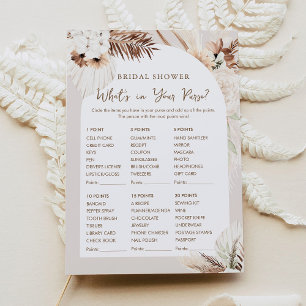 BRIDAL SHOWER
What's in Your Purse?
Circle the items you have in your purse and add up all the points.
The person with the most points wins!
1 POINT
CELL PHONE
CREDIT CARD
KEYS
PEN
DRIVER'S LICENSE
LIPSTICK/GLOSS
Points:
5 POINTS
GUM/MINTS
RECEIPT
COUPON
SUNGLASSES
BRUSH/COMB
TWEEZERS
Points:
8 POINTS
HAND SANITIZER
MIRROR
MASCARA
PHOTO
HEADPHONES
GIFT CARD
Points:
10 POINTS
BANDAID
PEPPER SPRAY
TOOTH BRUSH
TISSUE
LIBRARY CARD
CHECK BOOK
Points:
15 POINTS
A RECIPE
PLANNER/AGENDA
CHOCOLATE
JEWELRY
PHONE CHARGER
NAIL POLISH
Points:
20 POINTS
SEWING KIT
WINE
POCKET KNIFE
UNDERWEAR
POSTAGE STAMPS
PASSPORT
Points: